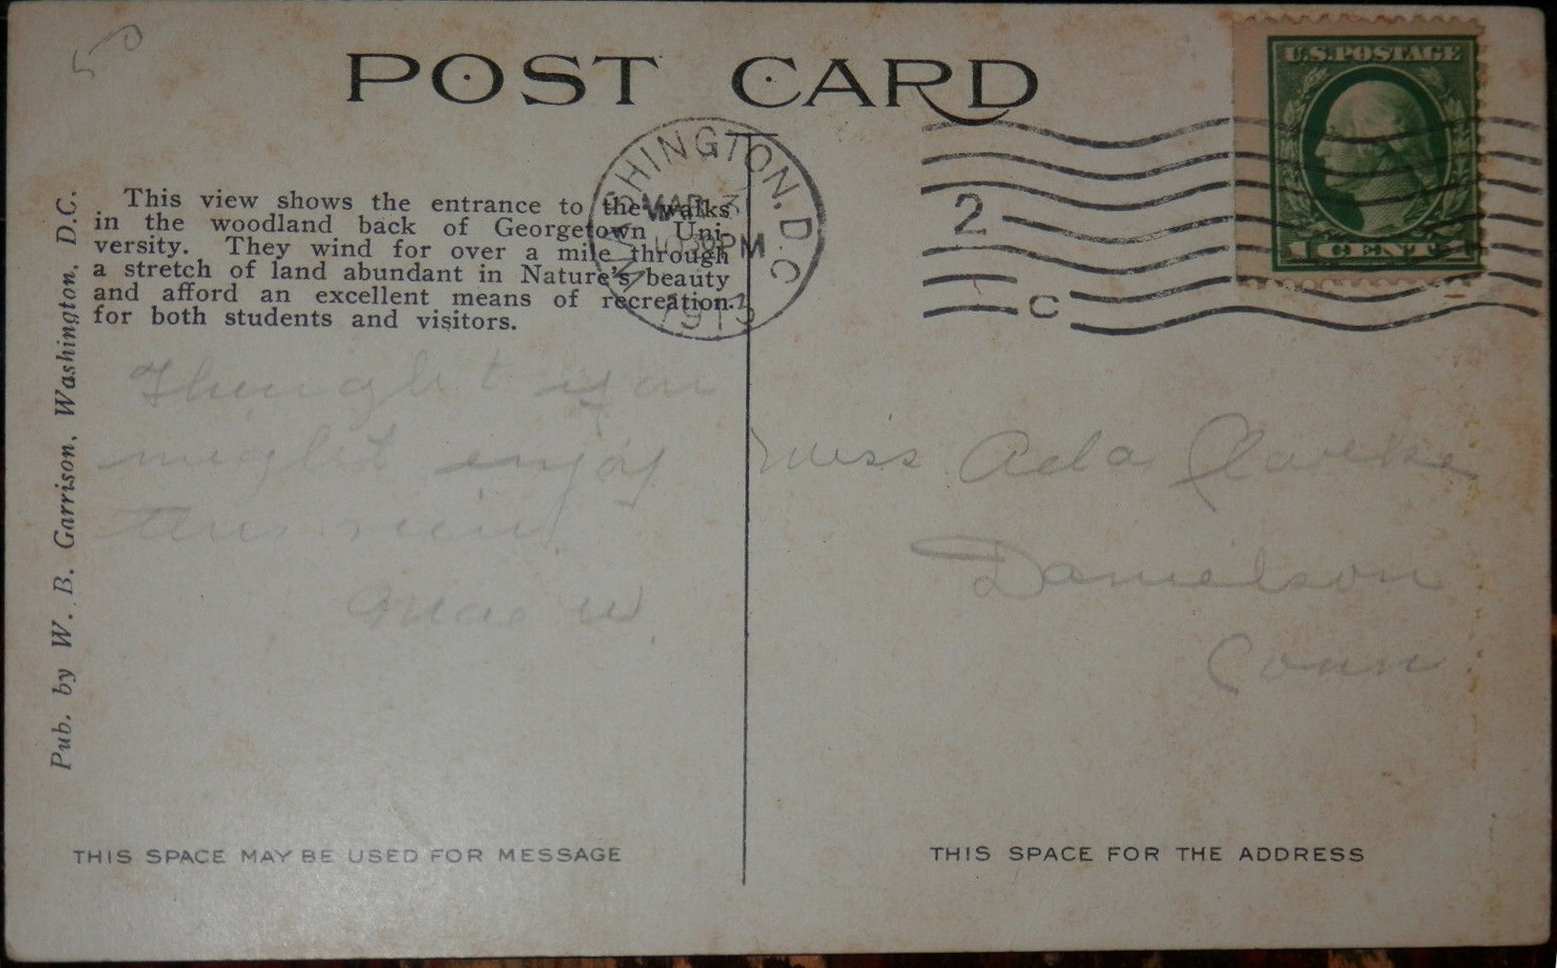 50
POST CARD
U.S. POSTAGE
1 CENT 1
WASHINGTON, D.C.
MAR 3
PM
1913
2
C
This view shows the entrance to the walks
in the woodland back of Georgetown Uni-
versity. They wind for over a mile through
a stretch of land abundant in Nature's beauty
and afford an excellent means of recreation.
for both students and visitors.
Pub. by W. B. Garrison, Washington, D.C.
Thought you
might enjoy
this view.
Mae W.
Miss Ada Clarke
Danielson
Conn.
THIS SPACE MAY BE USED FOR MESSAGE
THIS SPACE FOR THE ADDRESS